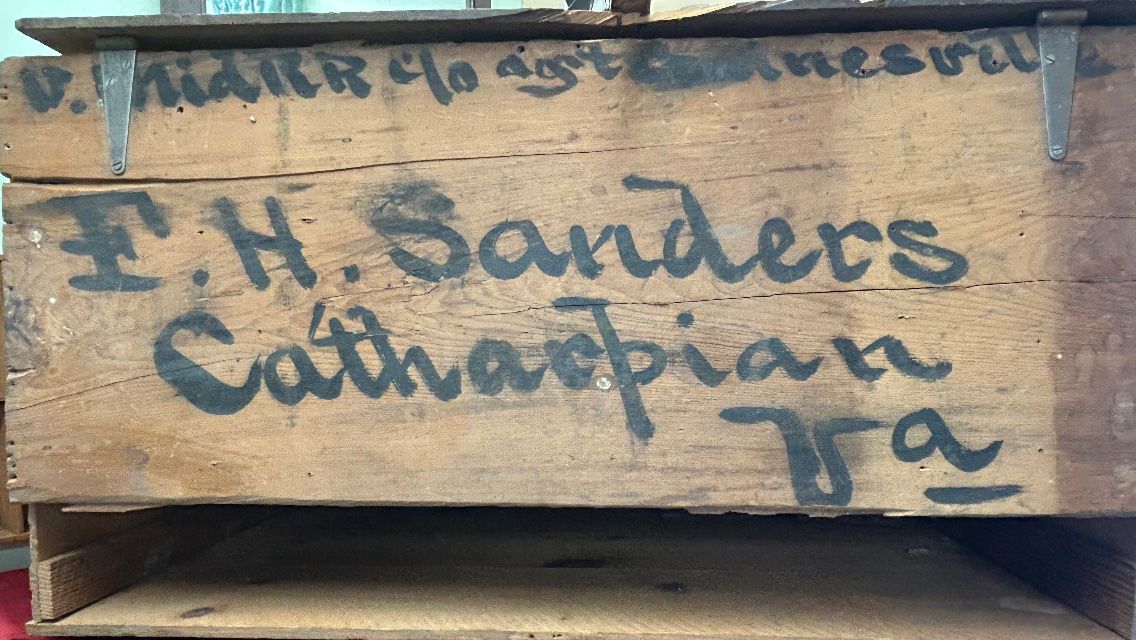 V. MidRR c/o agt Gainesville
F. H. Sanders
Catharpian
Va